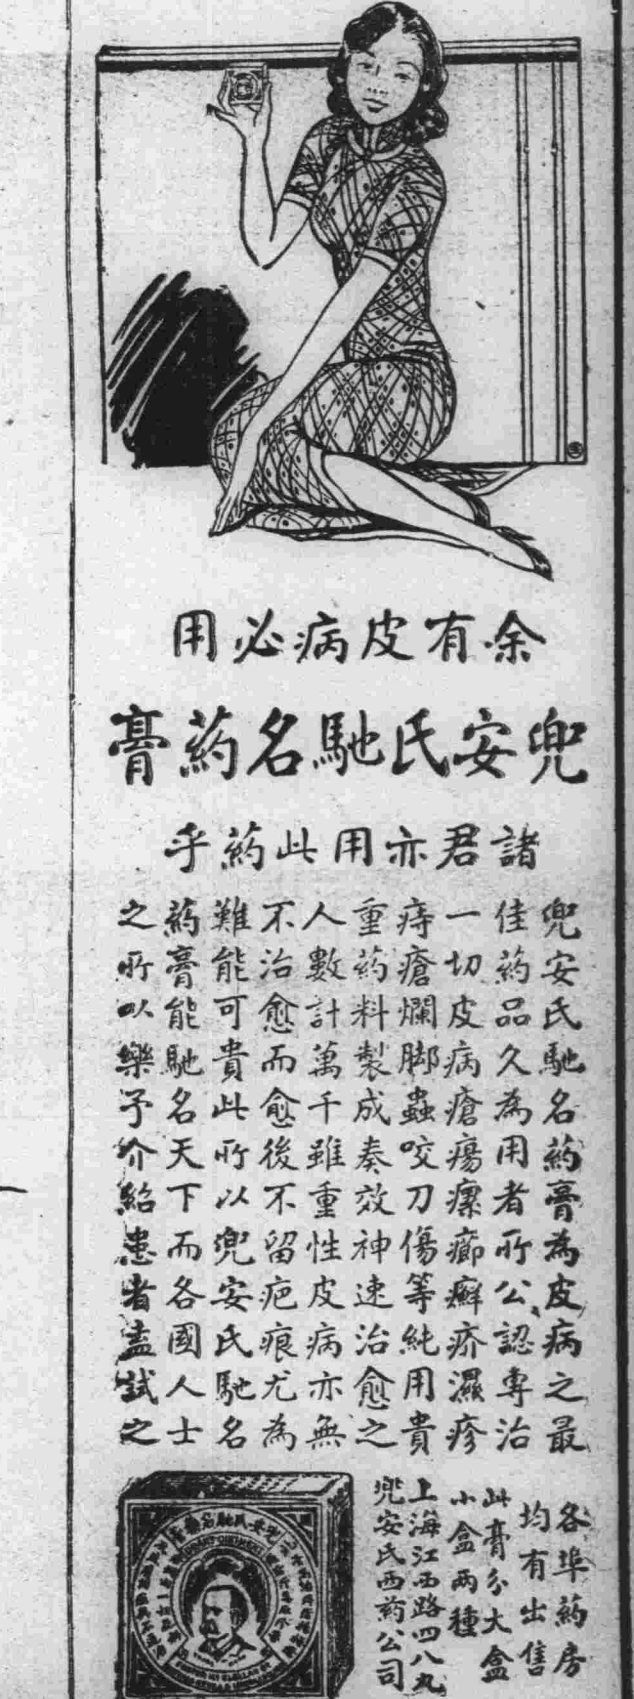 余有皮病必用
兜安氏馳名药膏
諸君亦用此药乎
兜安氏馳名药膏為皮病之最
佳药品久為用者所公認専治
一切皮病瘡瘍瘰癤癬疥濕疹
痔瘡爛脚蟲咬刀傷等純用貴
重药料製成奏效神速治愈之
人數計萬千雖重性皮病亦無
不治愈而愈後不留疤痕尤為
難能可貴此所以兜安氏馳名
药膏能馳名天下而各國人士
之所以樂予介紹患者盍試之
各埠药房
均有出售
此膏分大盒
小盒两種
上海江西路四八九
兜安氏西药公司
兜安氏馳名药膏
DOAN'S OINTMENT